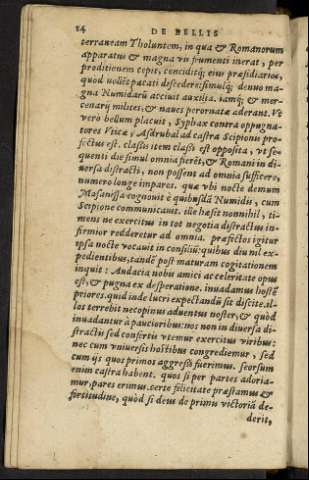 14 DE BELLIS
terraneam Tholuntem, in qua & Romanorum
apparatus & magna vis frumenti inerat, per
proditionem cepit, conciditq; eius præsidiarios,
quod noluisse pacati descedere: simulq; denuo ma-
gna Numidarũ acciuit auxilia. iamq; & mer-
cenarij milites, & naues perornatæ aderant. Vt
verò bellum placuit, Syphax contra oppugna-
tores Vticæ, Asdrubal ad castra Scipionis pro-
fectus est. classis item classi est opposita, vt se-
quenti die simul omnia ferẽt, & Romani in di-
uersa distracti, non possent ad omnia sufficere,
numero longe impares. quæ vbi nocte demum
Masanissa cognouit è quibusdã Numidis, cum
Scipione communicauit. ille hæsit nonnihil, ti-
mens ne exercitus in tot negotia distractus in-
firmior redderetur ad omnia. præfectos igitur
ipsa nocte vocauit in consiliũ: quibus diu nil ex-
pedientibus, tandẽ post maturam cogitationem
inquit: Audacia nobis amici ac celeritate opus
est, & pugna ex desperatione. inuadamus hostẽ
priores. quid inde lucri expectandũ sit discite. il-
los terrebit necopinus aduentus noster, & quòd
inuadantur à paucioribus: nos non in diuersa di-
stractis sed confertis vtemur exercitus viribus:
nec cum vniuersis hostibus congrediemur, sed
cum ijs quos primos aggressi fuerimus. seorsum
enim castra habent. quos si per partes adoria-
mur, pares erimus. certe felicitate præstamus &
fortitudine, quòd si deus de primis victoriã de-
derit,